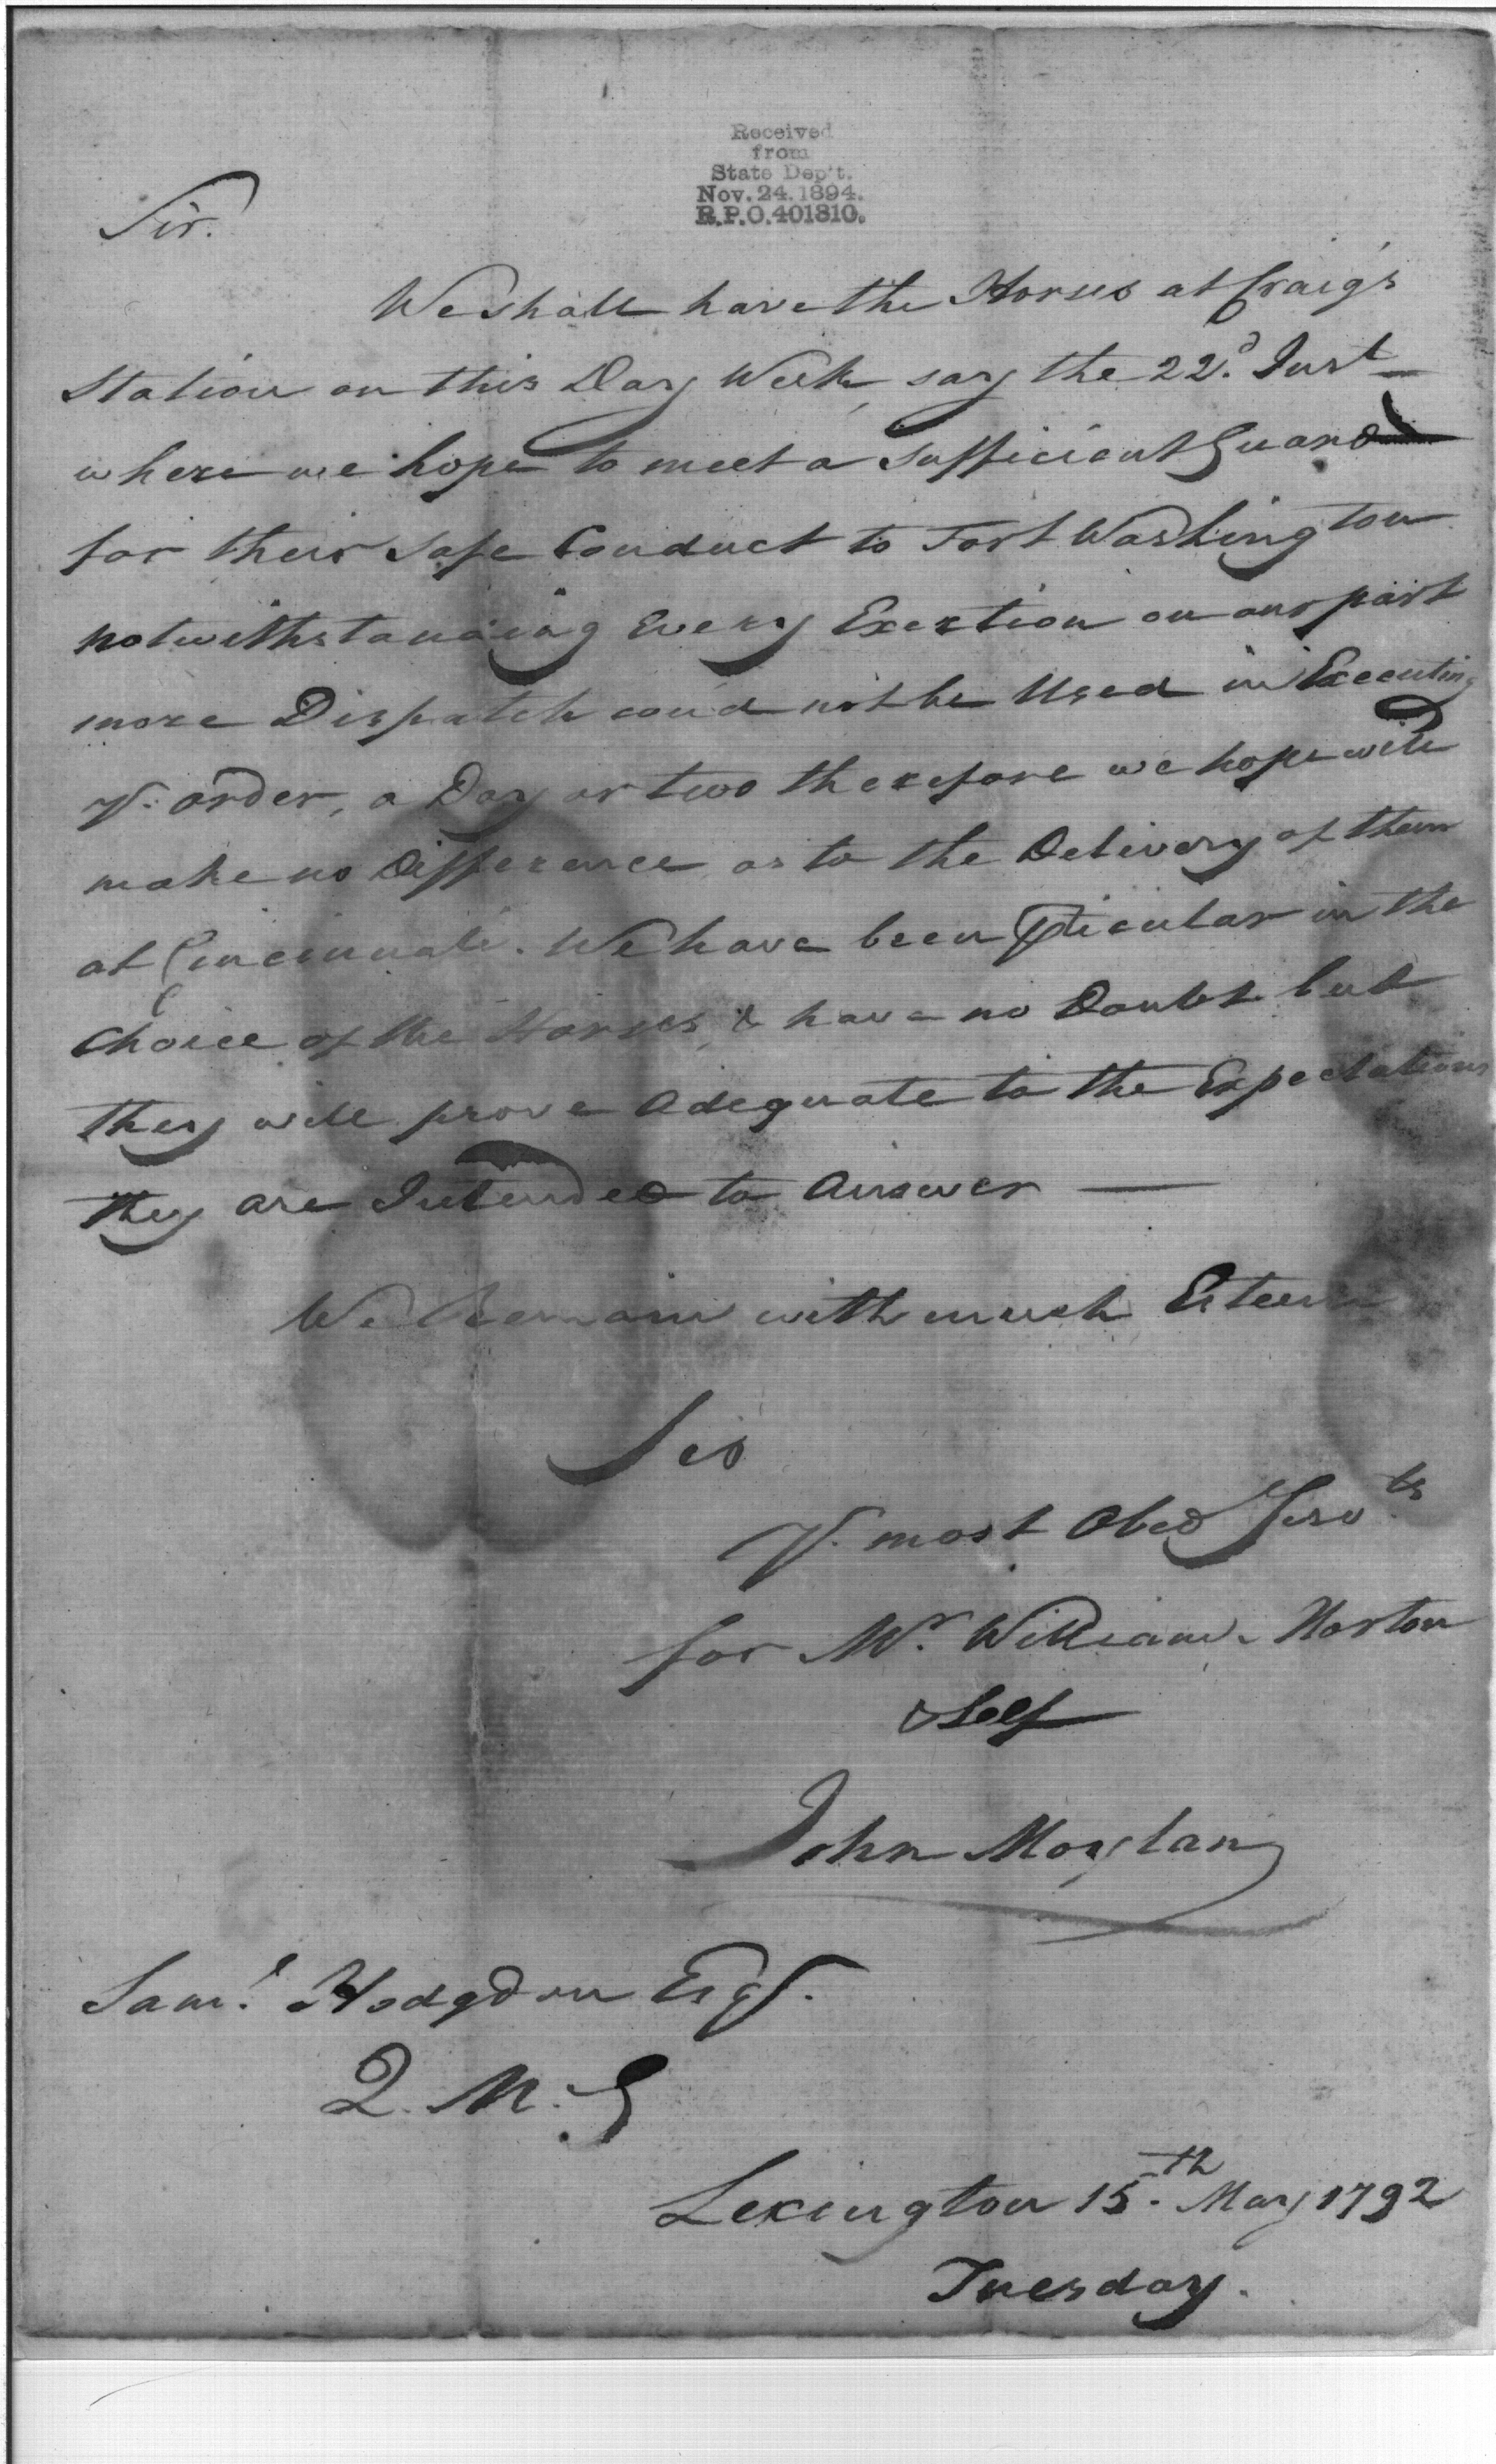 Received
from
State Dep't.
Nov. 24. 1894.
R.P.O. 401810.
Sir.
We shall have the Horses at Craig's
Station on this Day Week, say the 22d. Inst
where we hope to meet a sufficient Guard
for their safe Conduct to Fort Washington
notwithstanding Every Exertion on our part
more Dispatch coud not be Used in Executing
Yr. order, a Day or two therefore we hope will
make no Difference as to the Delivery of them
at Cincinnati. We have been Pticular in the
Choice of the Horses, & have no Doubt but
they will prove Adequate to the Expectations
they are Intended to Answer —
We Remain with much Esteem
Sir
Yr. most Obed Servts
for Mr. William Morton
& Self
John Moylan
Saml. Hodgdon Esqr.
Q. M. G
Lexington 15th. May 1792
Tuesday.